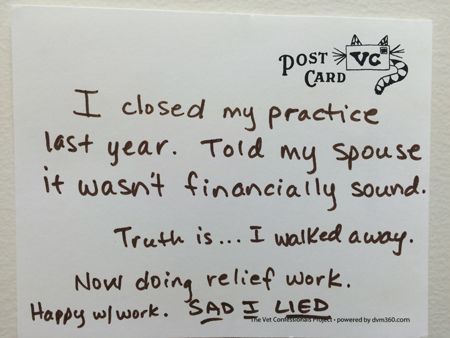 POST
CARD
VC
I closed my practice
last year. Told my spouse
it wasn't financially sound.
Truth is... I walked away.
Now doing relief work.
Happy w/work. SAD I LIED
The Vet Confessionals Project • powered by dvm360.com